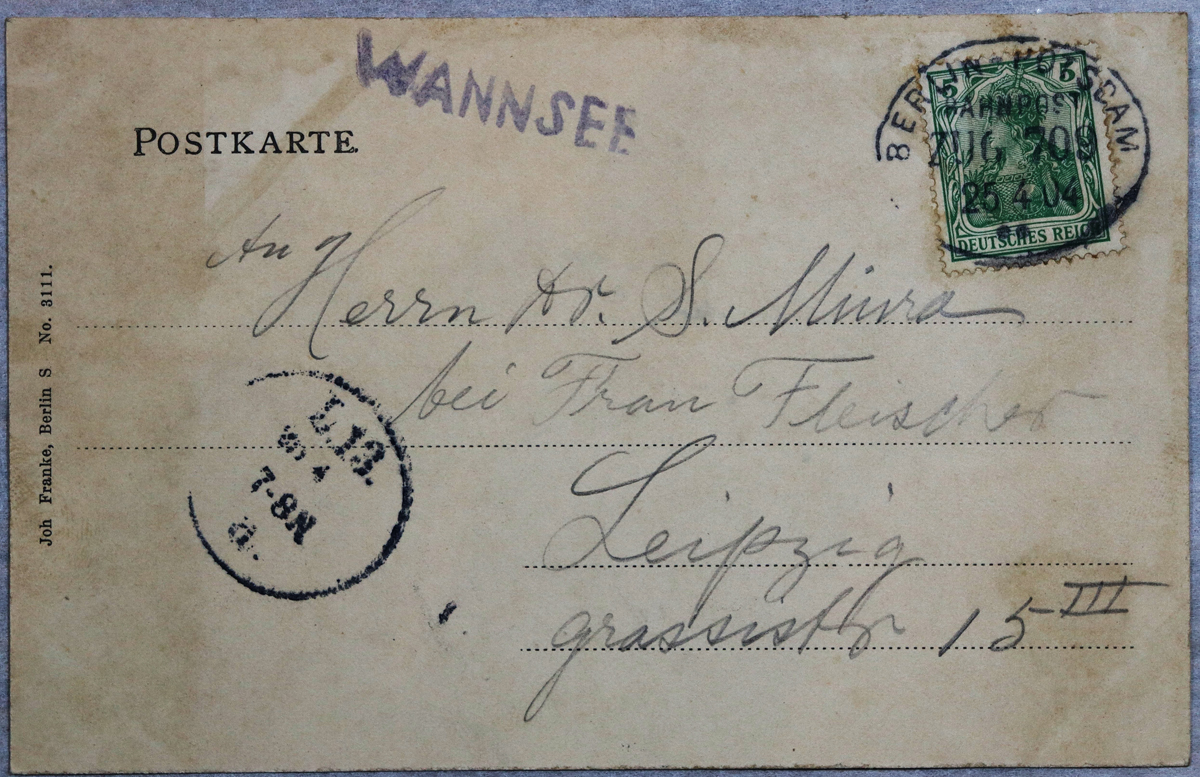 WANNSEE
POSTKARTE.
BERLIN-POTSDAM
BAHNPOST
ZUG 709
25 4 04
5 5
DEUTSCHES REICH
An
Herrn Dr. S. Miura
bei Frau Fleischer
Leipzig
Grassistr 15 III
L 13.
4
7-8N
Joh Franke, Berlin S No. 3111.